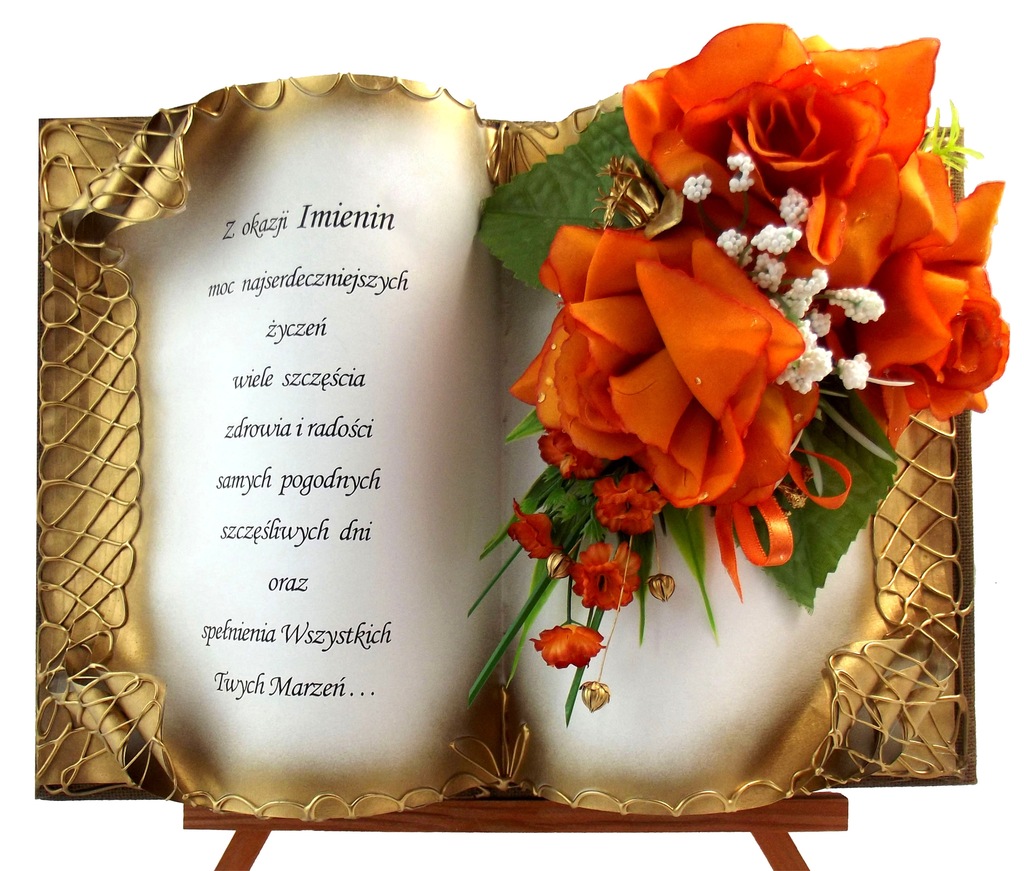 Z okazji Imienin
moc najserdeczniejszych
życzeń
wiele szczęścia
zdrowia i radości
samych pogodnych
szczęśliwych dni
oraz
spełnienia Wszystkich
Twych Marzeń...